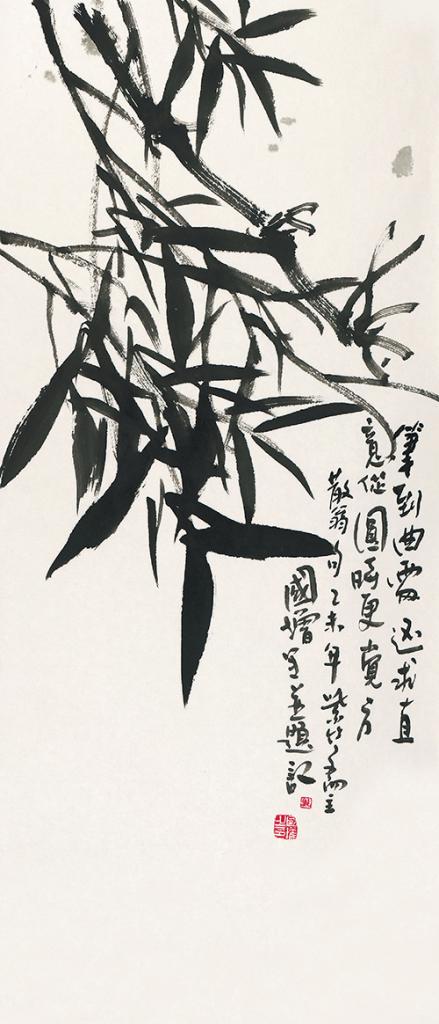 筆到曲處還求直
意從圓時更覺方
散翁句乙未年紫竹齋主
國增寫並題記